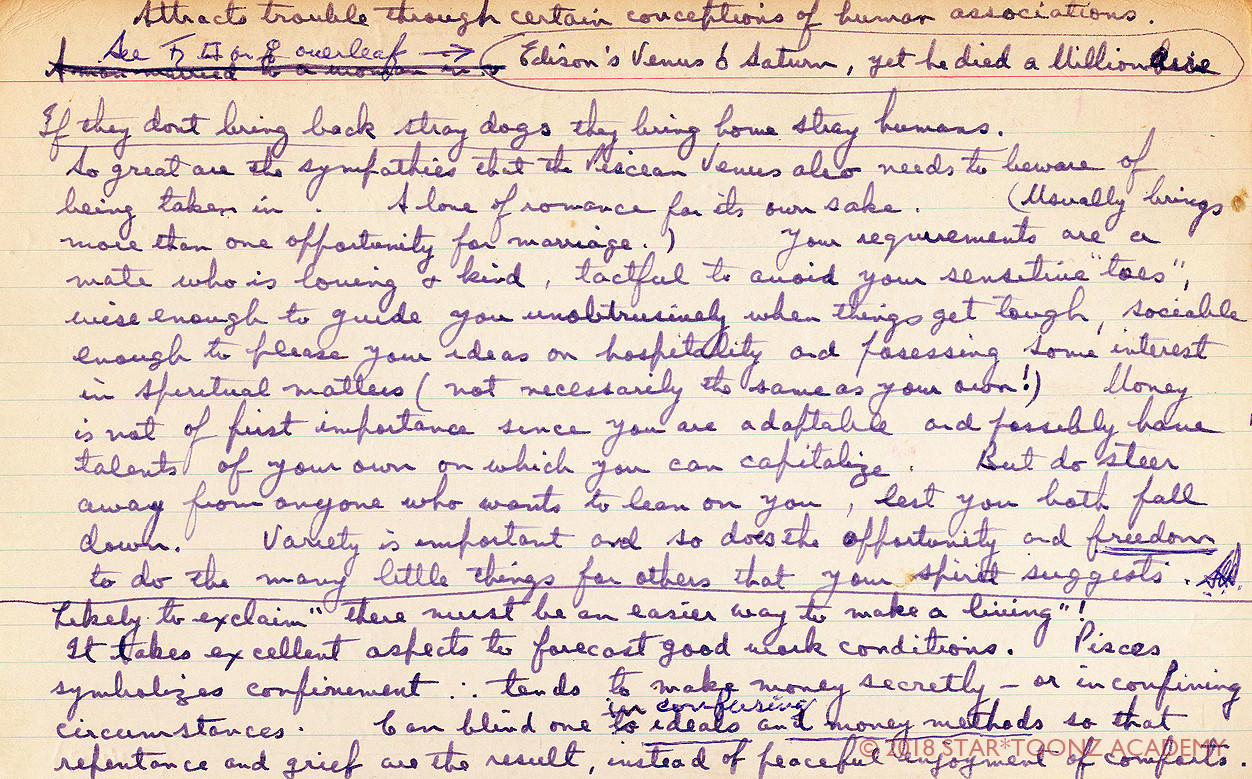 Attracts trouble through certain conceptions of human associations.
See ♄ ♊ or ☿ overleaf → Edison's Venus ☌ Saturn, yet he died a Millionaire
A man married to a woman in
If they dont bring back stray dogs they bring home stray humans.
So great are the sympathies that the Piscean Venus also needs to beware of
being taken in . A love of romance for its own sake . (Usually brings
more than one opportunity for marriage.) Your requirements are a
mate who is loving & kind, tactful to avoid your sensitive "toes",
wise enough to guide you unobtrusively when things get tough, sociable
enough to please your ideas on hospitality and posessing some interest
in spiritual matters (not necessarily the same as your own!) Money
is not of first importance since you are adaptable and possibly have
talents of your own on which you can capitalize. But do steer
away from anyone who wants to lean on you, lest you both fall
down. Variety is important and so does the opportunity and freedom
to do the many little things for others that your spirit suggests.
Likely to exclaim "there must be an easier way to make a living"!
It takes excellent aspects to forecast good work conditions. Pisces
symbolizes confinement ∴ tends to make money secretly – or in confining
in confusing
circumstances. Can blind one to ideals and money methods so that
repentance and grief are the result, instead of peaceful enjoyment of comforts.
© 2018 STAR*TOONZ ACADEMY